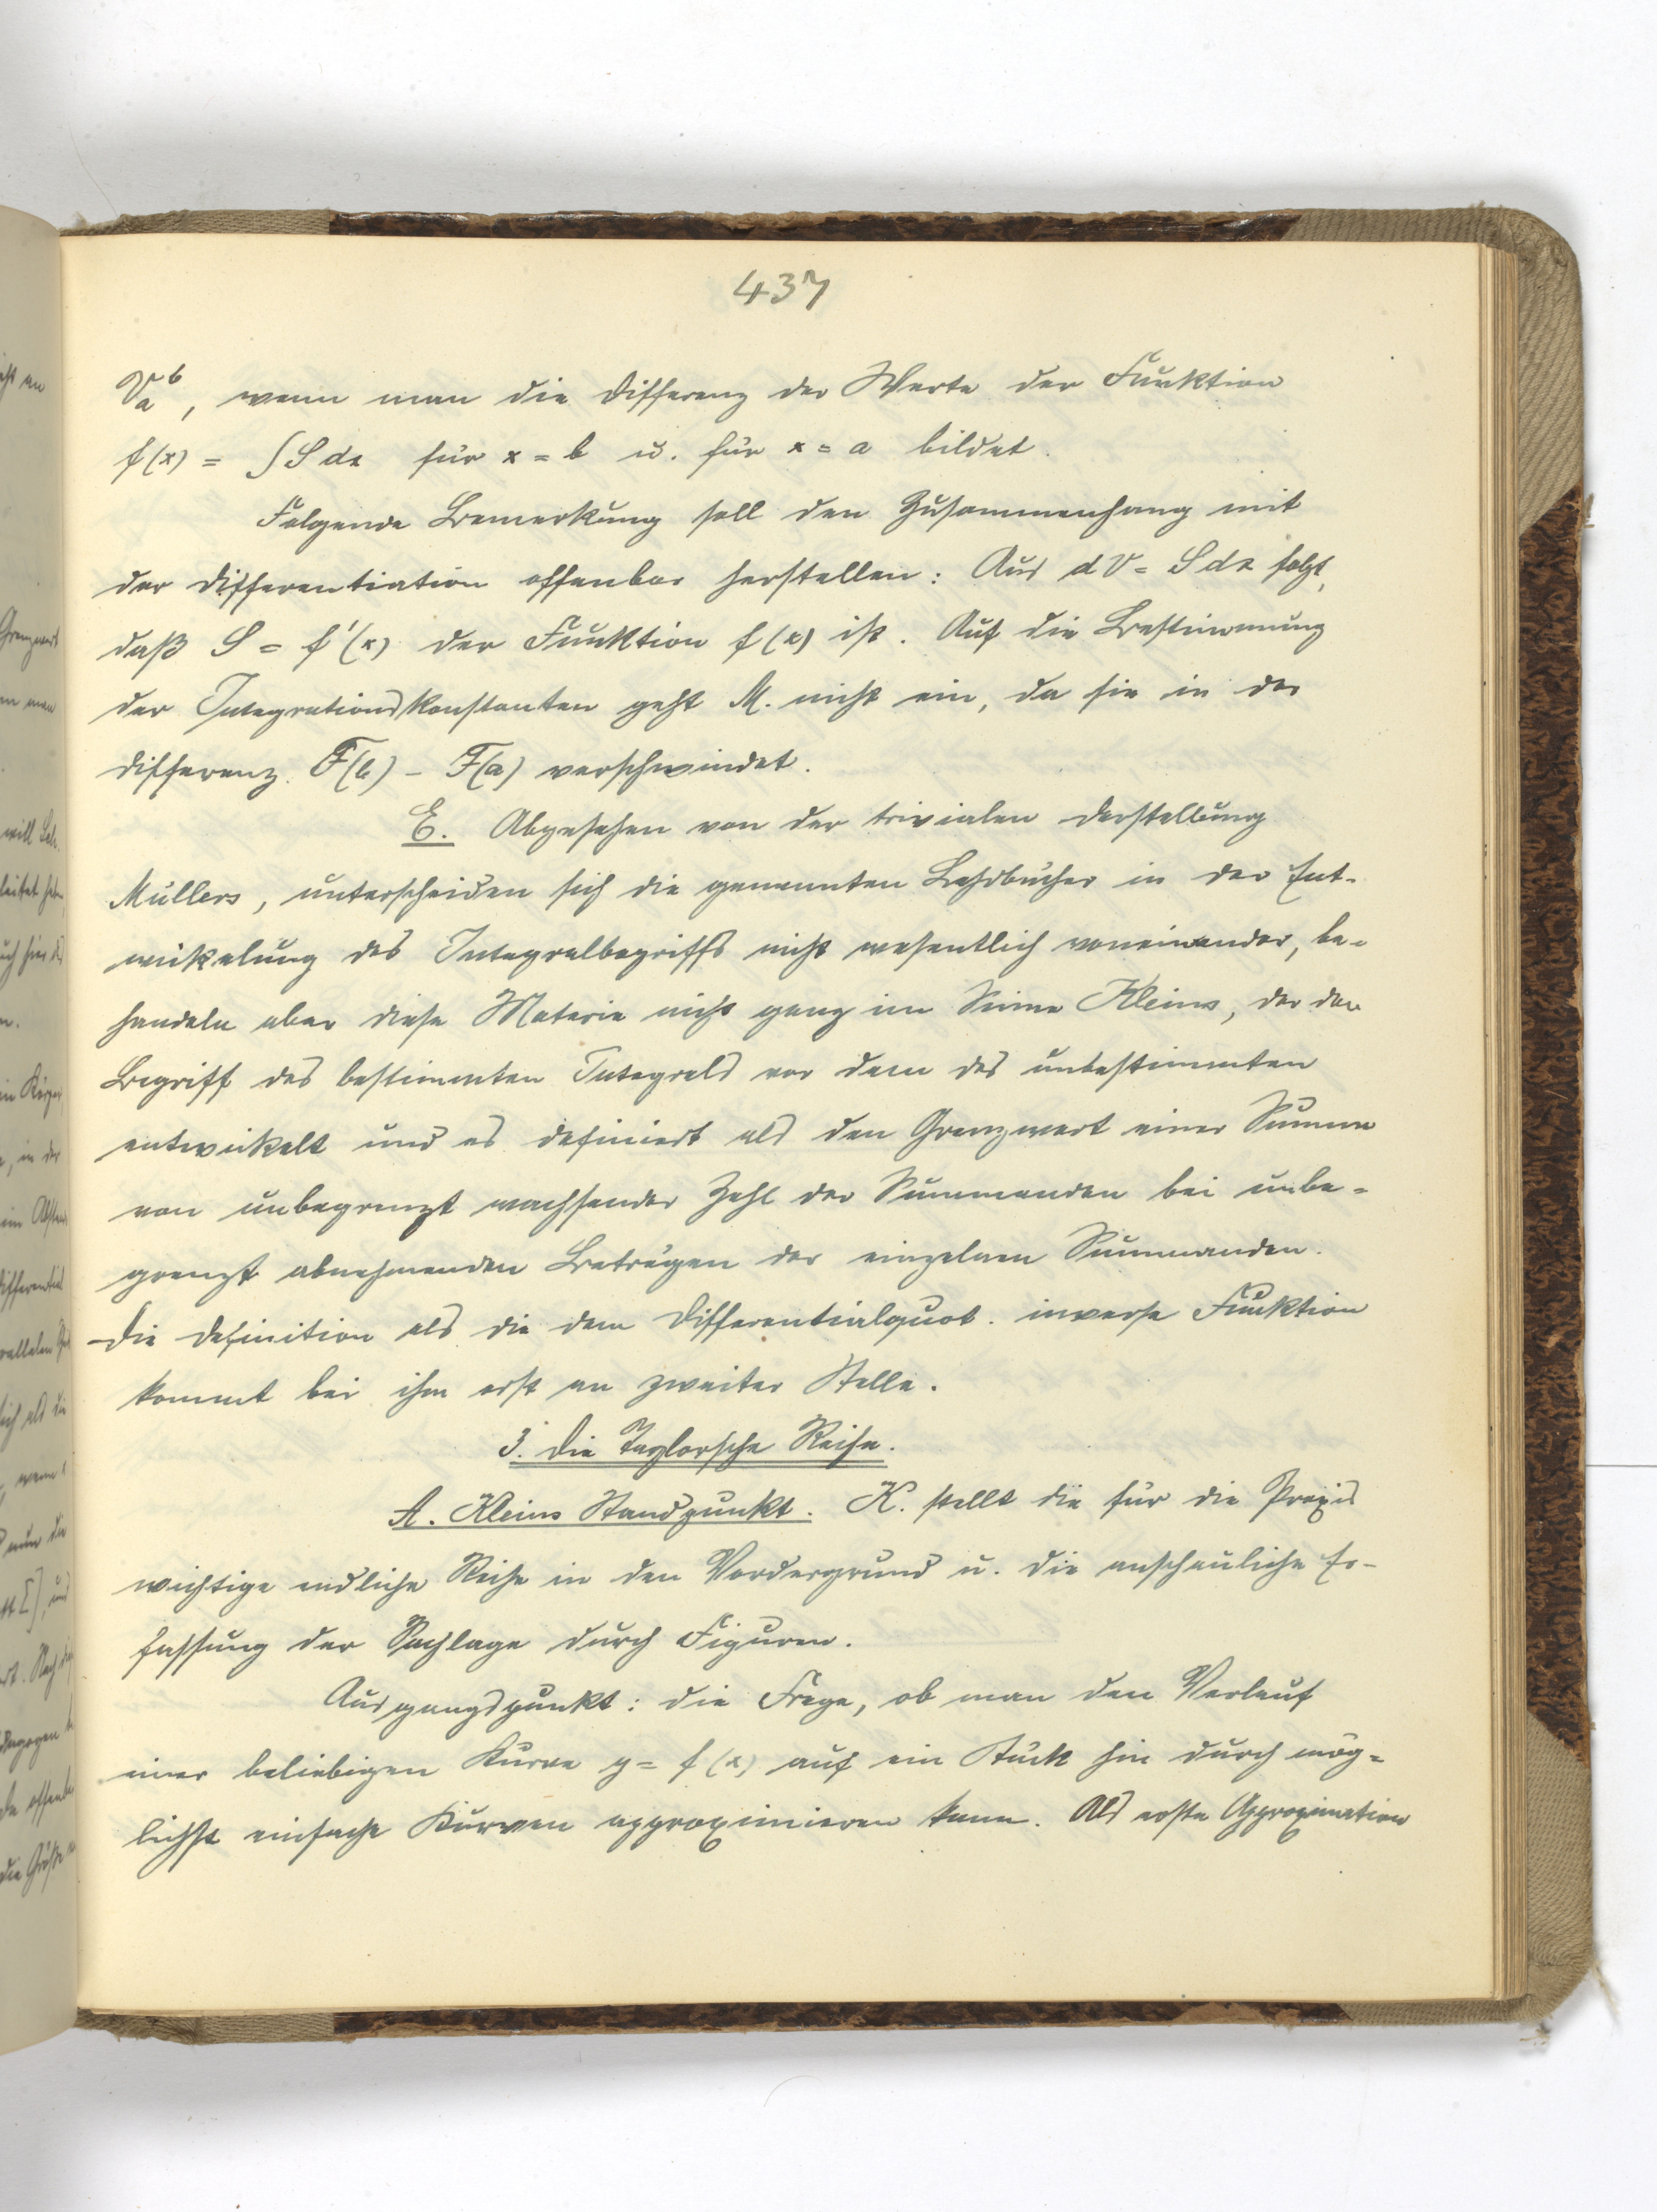 437
V_a^b, wenn man die Differenz der Werte der Funktion
f(x) = ∫S dx für x = b u. für x = a bildet.
Folgende Bemerkung soll den Zusammenhang mit
der Differentiation offenbar herstellen: Aus dV = S dx folgt,
daß S = f'(x) der Funktion f(x) ist. Auf die Bestimmung
der Integrationskonstanten geht M. nicht ein, da sie in der
Differenz F(b) - F(a) verschwindet.
E. Abgesehen von der trivialen Darstellung
Müllers, unterscheiden sich die genannten Lehrbücher in der Ent-
wickelung des Integralbegriffs nicht wesentlich voneinander, be-
handeln aber diese Materie nicht ganz im Sinne Kleins, der den
Begriff des bestimmten Integrals vor dem des unbestimmten
entwickelt und es definiert als den Grenzwert einer Summe
von unbegrenzt wachsender Zahl der Summanden bei unbe-
grenzt abnehmenden Beträgen der einzelnen Summanden.
Die Definition als die dem Differentialquot. inverse Funktion
kommt bei ihm erst an zweiter Stelle.
3. Die Taylorsche Reihe.
A. Kleins Standpunkt. K. stellt die für die Praxis
wichtige endliche Reihe in den Vordergrund u. die anschauliche Er-
fassung der Sachlage durch Figuren.
Ausgangspunkt: die Frage, ob man den Verlauf
einer beliebigen Kurve y = f(x) auf ein Stück hin durch mög-
lichst einfache Kurven approximieren kann. Als erste Approximation